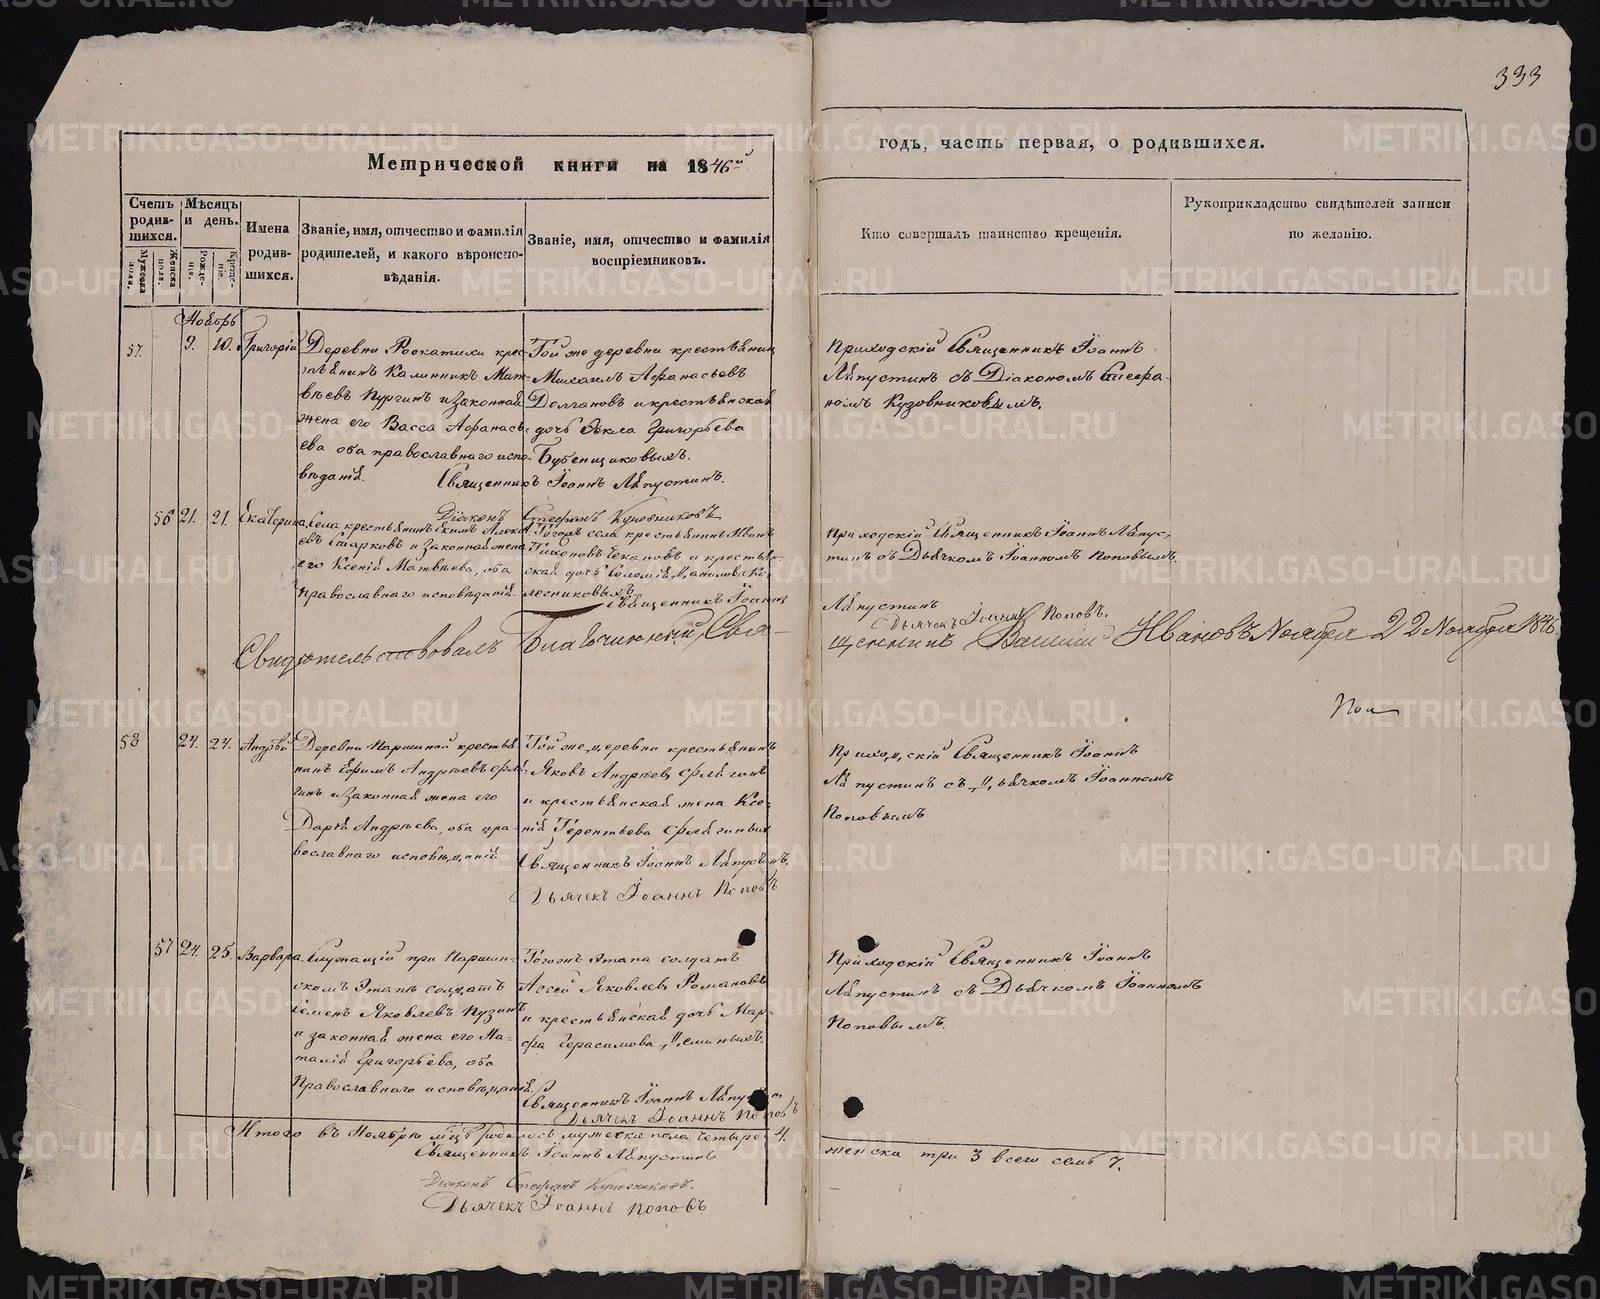 333
Метрической книги на 1846й
годъ, часть первая, о родившихся.
Счетъ родившихся.
Мужеска пола.
Женска пола.
Мѣсяцъ и день.
Рожденіе.
Крещеніе.
Имена родившихся.
Званіе, имя, отчество и фамилія родителей, и какого вѣроисповѣданія.
Званіе, имя, отчество и фамилія воспріемниковъ.
Кто совершалъ таинство крещенія.
Рукоприкладство свидѣтелей записи по желанію.
Ноябрь
57. 9. 10. Григорій
Деревни Роскатихи крес-
тьянинъ Калинникъ Мат-
вѣевъ Пургинъ и законная
жена его Васса Афанась-
ева оба православнаго испо-
вѣданія.
Той же деревни крестьянинъ
Михаилъ Афанасьевъ
Долгановъ и крестьянская
дочь Фекла Григорьева
Бубенщиковыхъ.
Священникъ Іоаннъ Ляпустинъ.
Діаконъ Стефанъ Кузовниковъ
Приходскій Священникъ Іоаннъ
Ляпустинъ съ Діакономъ Стефа-
номъ Кузовниковымъ.
56 21. 21. Екатерина
Села крестьянинъ Екимъ Алексѣ-
евъ Старковъ и законная жена
его Ксенія Матвѣева, оба
православнаго исповѣданія.
Тогожъ села крестьянинъ Иванъ
Тихоновъ Чекановъ и крестьян-
ская дочь Соломія Данилова Ко-
лесниковыхъ
Священникъ Іоаннъ
Ляпустинъ
Дьячекъ Іоаннъ Поповъ.
Приходскій Священникъ Іоаннъ Ляпус-
тинъ съ Дьячкомъ Іоанномъ Поповымъ.
Свидѣтельствовалъ Благочинный, Свя-
щенникъ Василій Ивановъ Ноября 22 Ноября 1846.
58 24. 24. Андрѣй
Деревни Паршиной крестья-
нинъ Ефимъ Андрѣевъ Фля-
гинъ и законная жена его
Дарья Андрѣева, оба пра-
вославнаго исповѣданія
Той же деревни крестьянинъ
Яковъ Андрѣевъ Флягинъ
и крестьянская жена Ксе-
нія Терентьева Флягиныхъ
Священникъ Іоаннъ Ляпустинъ.
Дьячекъ Іоаннъ Поповъ
Приходскій Священникъ Іоаннъ
Ляпустинъ съ Дьячкомъ Іоанномъ
Поповымъ
57 24. 25. Варвара.
Служащій при Паршин-
скомъ Этапѣ солдатъ
Семенъ Яковлевъ Пузинъ
и законная жена его На-
талія Григорьева, оба
Православнаго исповѣданія.
Тогожъ Этапа солдатъ
Аггей Яковлевъ Романовъ
и крестьянская дочь Мар-
фа Герасимова Деминыхъ.
Священникъ Іоаннъ Ляпустинъ
Дьячекъ Іоаннъ Поповъ
Приходскій Священникъ Іоаннъ
Ляпустинъ съ Дьячкомъ Іоанномъ
Поповымъ.
Итого въ Ноябрѣ мцѣ родилось мужеска пола четыре 4.
женска три 3 всего семь 7.
Священникъ Іоаннъ Ляпустинъ
Діаконъ Стефанъ Кузовниковъ.
Дьячекъ Іоаннъ Поповъ
METRIKI.GASO-URAL.RU